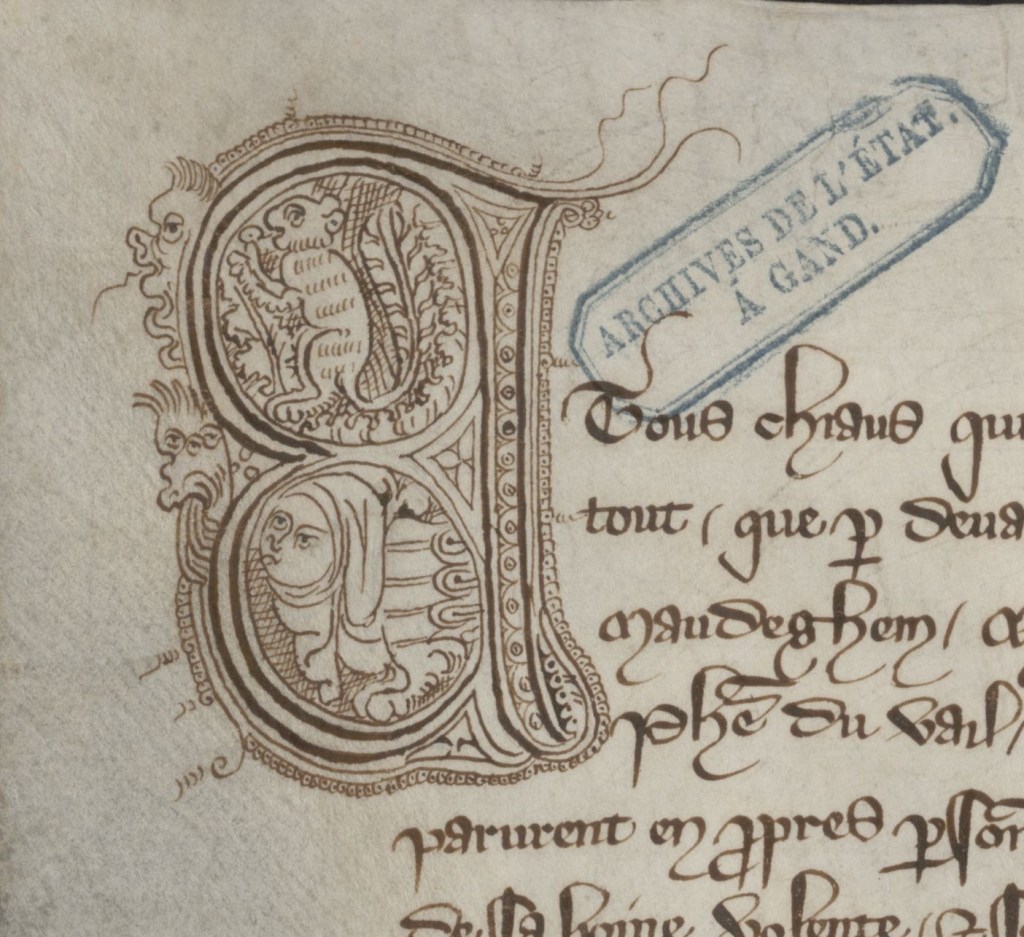 ARCHIVES DE L'ÉTAT.
À GAND.
A
Tous chiaus qui
tout / que p̲ deva
Maudeghem /
Phē du vail
parurent en ꝓpres
de sa boine volente /